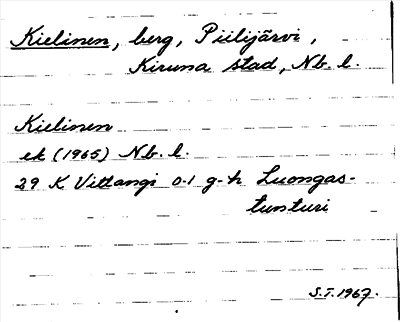 Kielinen, berg, Piilijärvi,
Kiruna stad, Nb. l.
Kielinen
ek (1965) Nb. l.
29 K Vittangi 0-1 g-h Luongas-
tunturi
S.T. 1967.